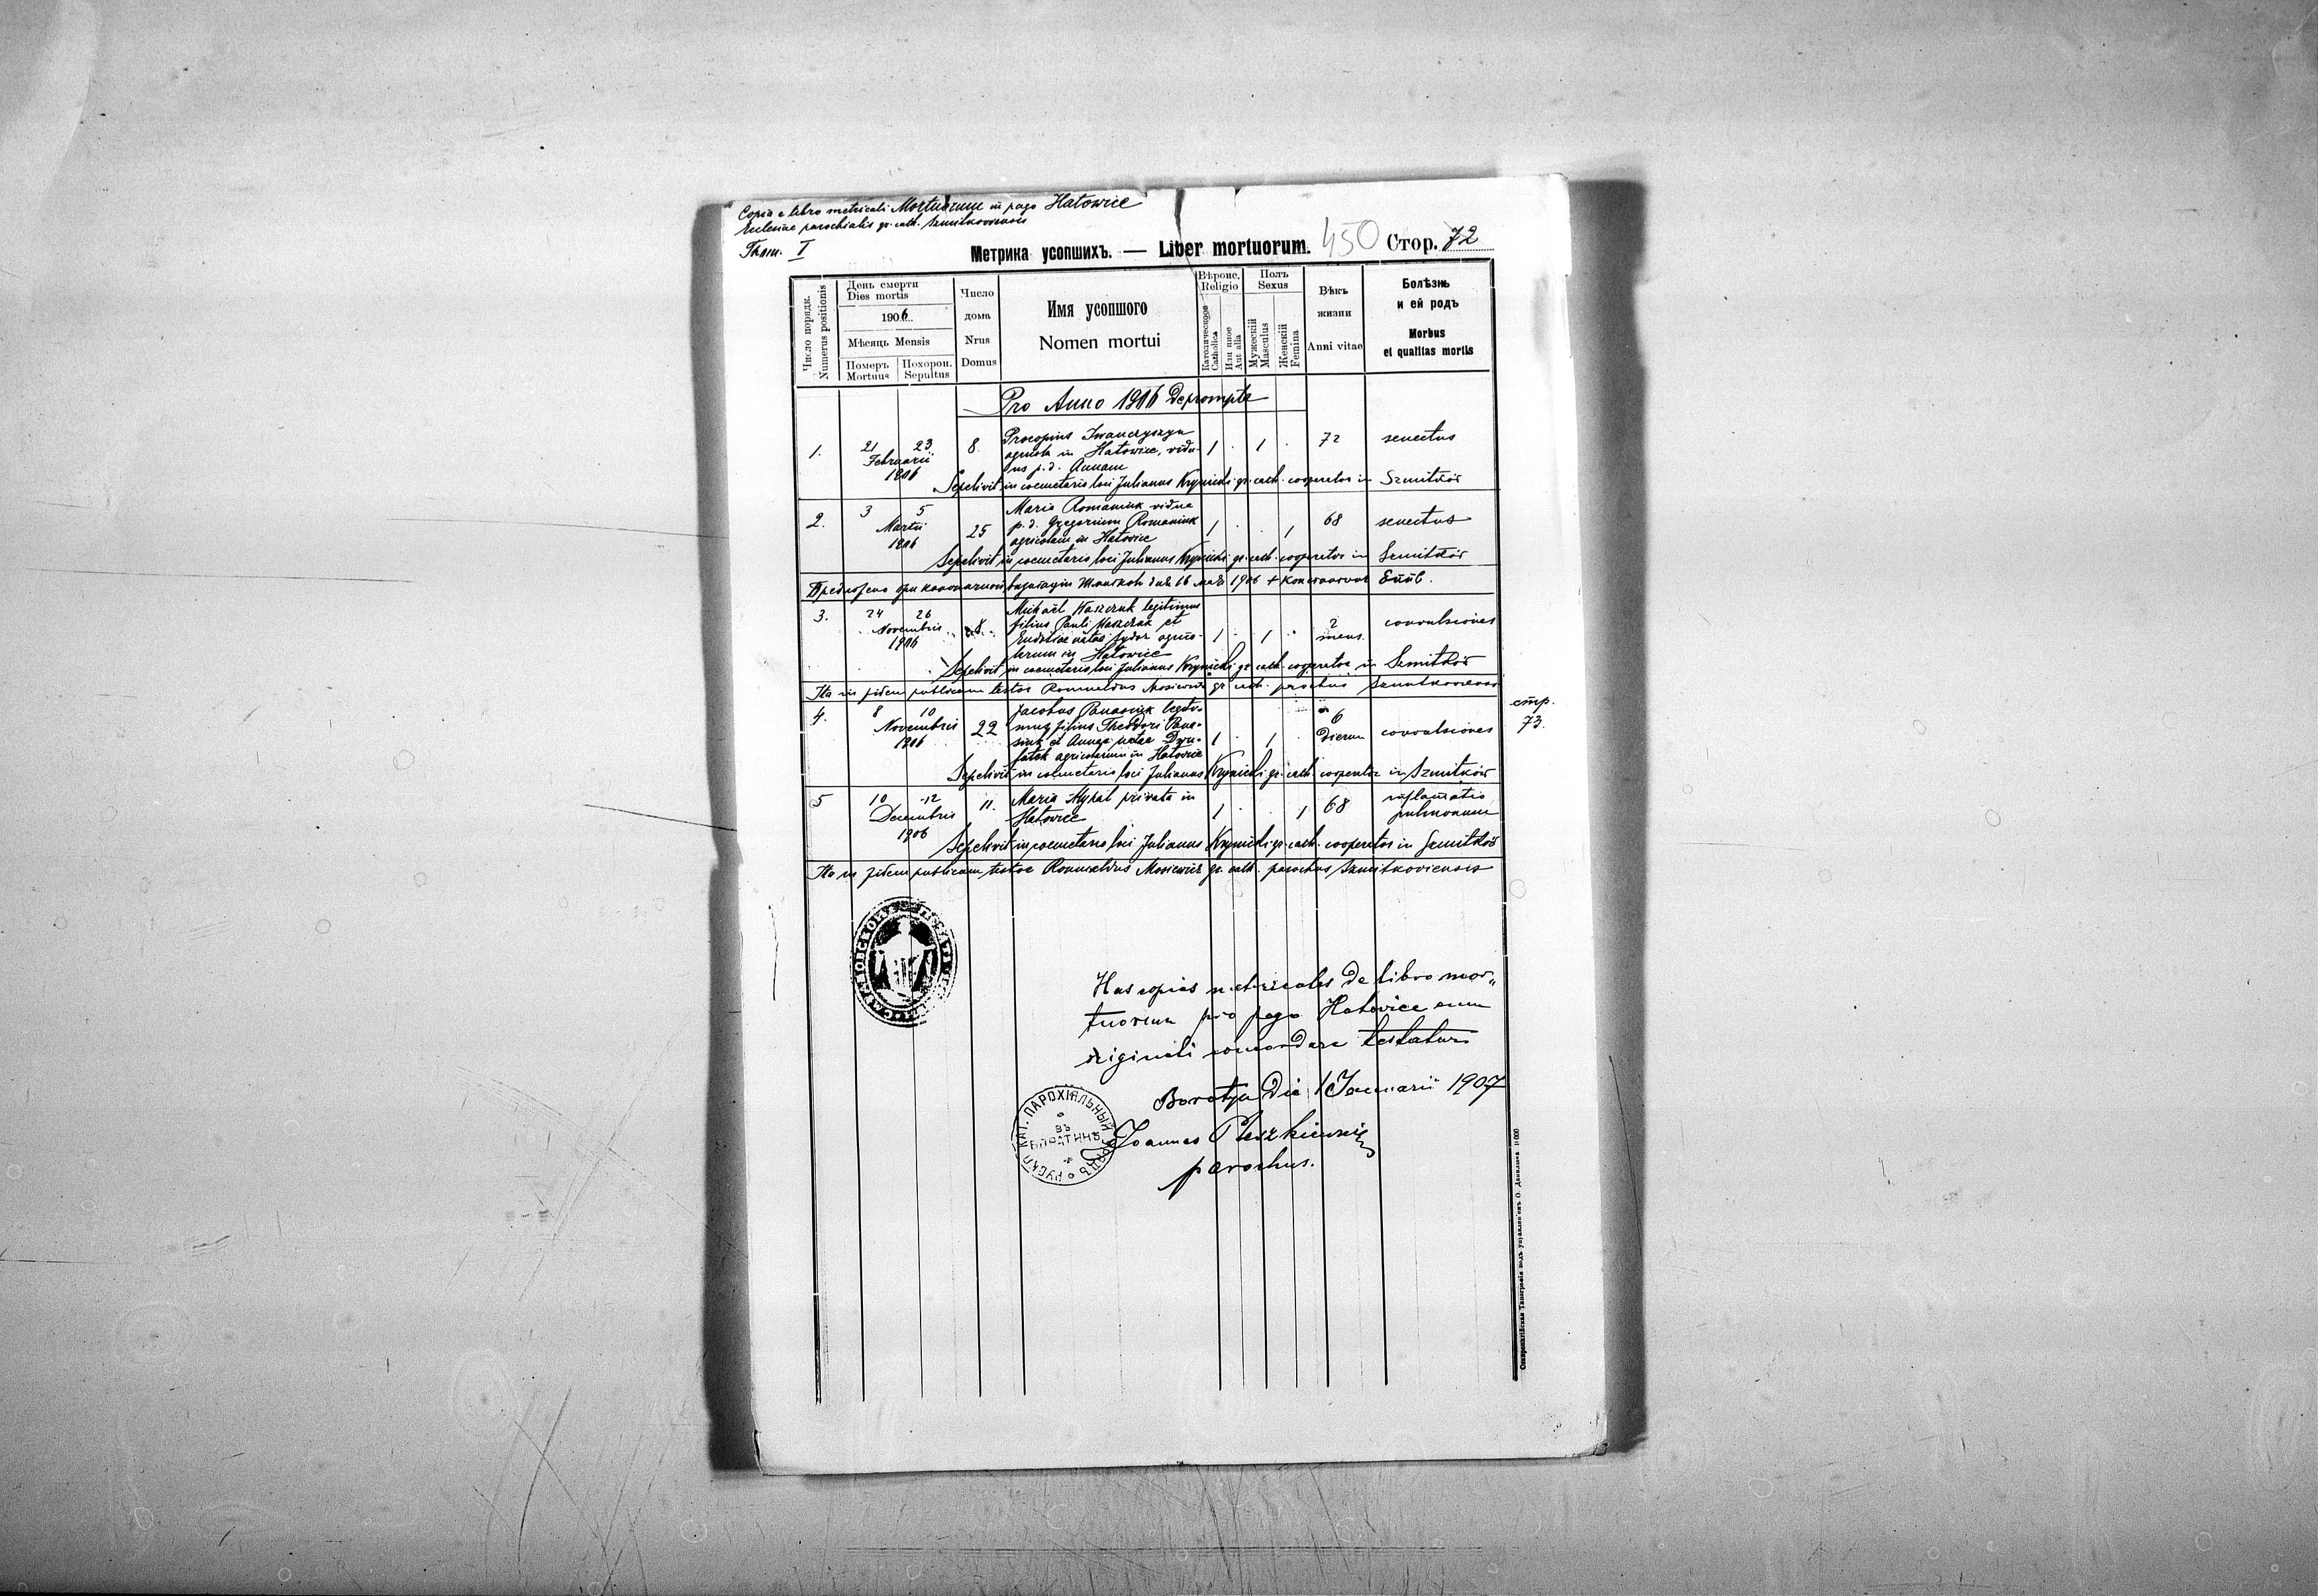 Copia e libro metricali Mortuorum in pago Hatowice
Ecclesiae parochialis gr. cath. Szmitkoviensis
Thom. I
Метрика усопшихъ. — Liber mortuorum. 450 Стор. 72
Число порядк. Numerus positionis
День смерти Dies mortis
1906
Мѣсяць Mensis
Померъ Mortuus
Похорон. Sepultus
Число дома Nrus Domus
Имя усопшого
Nomen mortui
Вѣроис. Religio
Католическое Catholica
Или иное Aut alia
Полъ Sexus
Мужескій Masculus
Женскій Femina
Вѣкъ жизни Anni vitae
Болѣзнь и ей родъ
Morbus et qualitas mortis
Pro Anno 1906 Deprompta
1. 21 23 Februarii 1906 8. Procopius Iwanczyszyn 1 . 1 . 72 senectus
agricola in Hatowice, vidu-
us p. d. Annam
Sepelivit in coemetario loci Julianus Krynicki gr. cath. cooperator in Szmitków
2. 3 5 Martii 1906 25 Maria Romaniuk vidua 1 . . 1 68 senectus
p. d. Gregorium Romaniuk
agricolam in Hatowice
Sepelivit in coemetario loci Julianus Krynicki gr. cath. cooperator in Szmitków
1906 + Еппб.
3. 24 26 Novembris 1906 8. Michael Kaszczuk legitimus 1 . 1 . 2 mens. convulsiones
filius Pauli Kaszczuk et
Eudociae natae Sydor agrico-
larum in Hatowice
Sepelivit in coemetario loci Julianus Krynicki gr. cath. cooperator in Szmitków
Ita in fidem publicam testor Romualdus Mosiewicz gr. cath. parochus Szmitkoviensis
4. 8 10 Novembris 1906 22 Jacobus Panasiuk legiti- 1 . 1 . 6 dierum convulsiones
mus filius Theodori Pana-
siuk et Annae natae
agricolarum in Hatowice
стр. 73.
Sepelivit in coemetario loci Julianus Krynicki gr. cath. cooperator in Szmitków
5 10 12 Decembris 1906 11. Maria Mykal privata in 1 . . 1 68 inflamatio pulmonum
Hatowice
Sepelivit in coemetario loci Julianus Krynicki gr. cath. cooperator in Szmitków
Ita in fidem publicam testor Romualdus Mosiewicz gr. cath. parochus Szmitkoviensis
Has copias metricales de libro mor„
tuorum pro pago Hatowice cum
originali concordare testatur
Boratyn Die 1 Januarii 1907
Joannes Pleszkiewicz
parochus.
РУСК. КАТ. ПАРОХІЯЛЬНЫЙ УРЯДЪ
ВЪ
БОРАТИНѢ